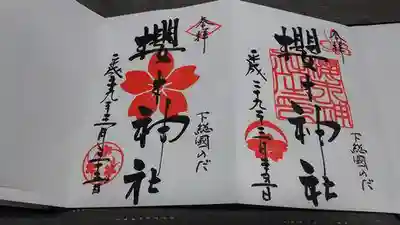 奉拝
下総國のだ
櫻木神社
平成二十九年三月二十五日
奉拝
下総國のだ
櫻木神社
平成二十九年三月二十五日